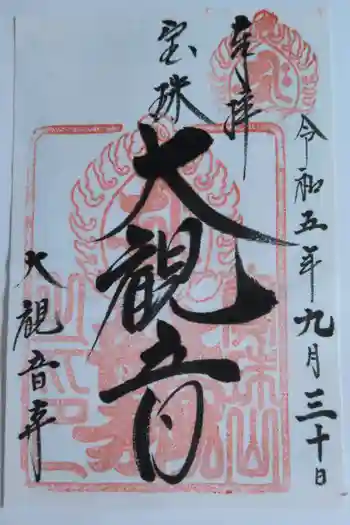 奉拝
令和五年九月三十日
宝珠
大観音
大観音寺